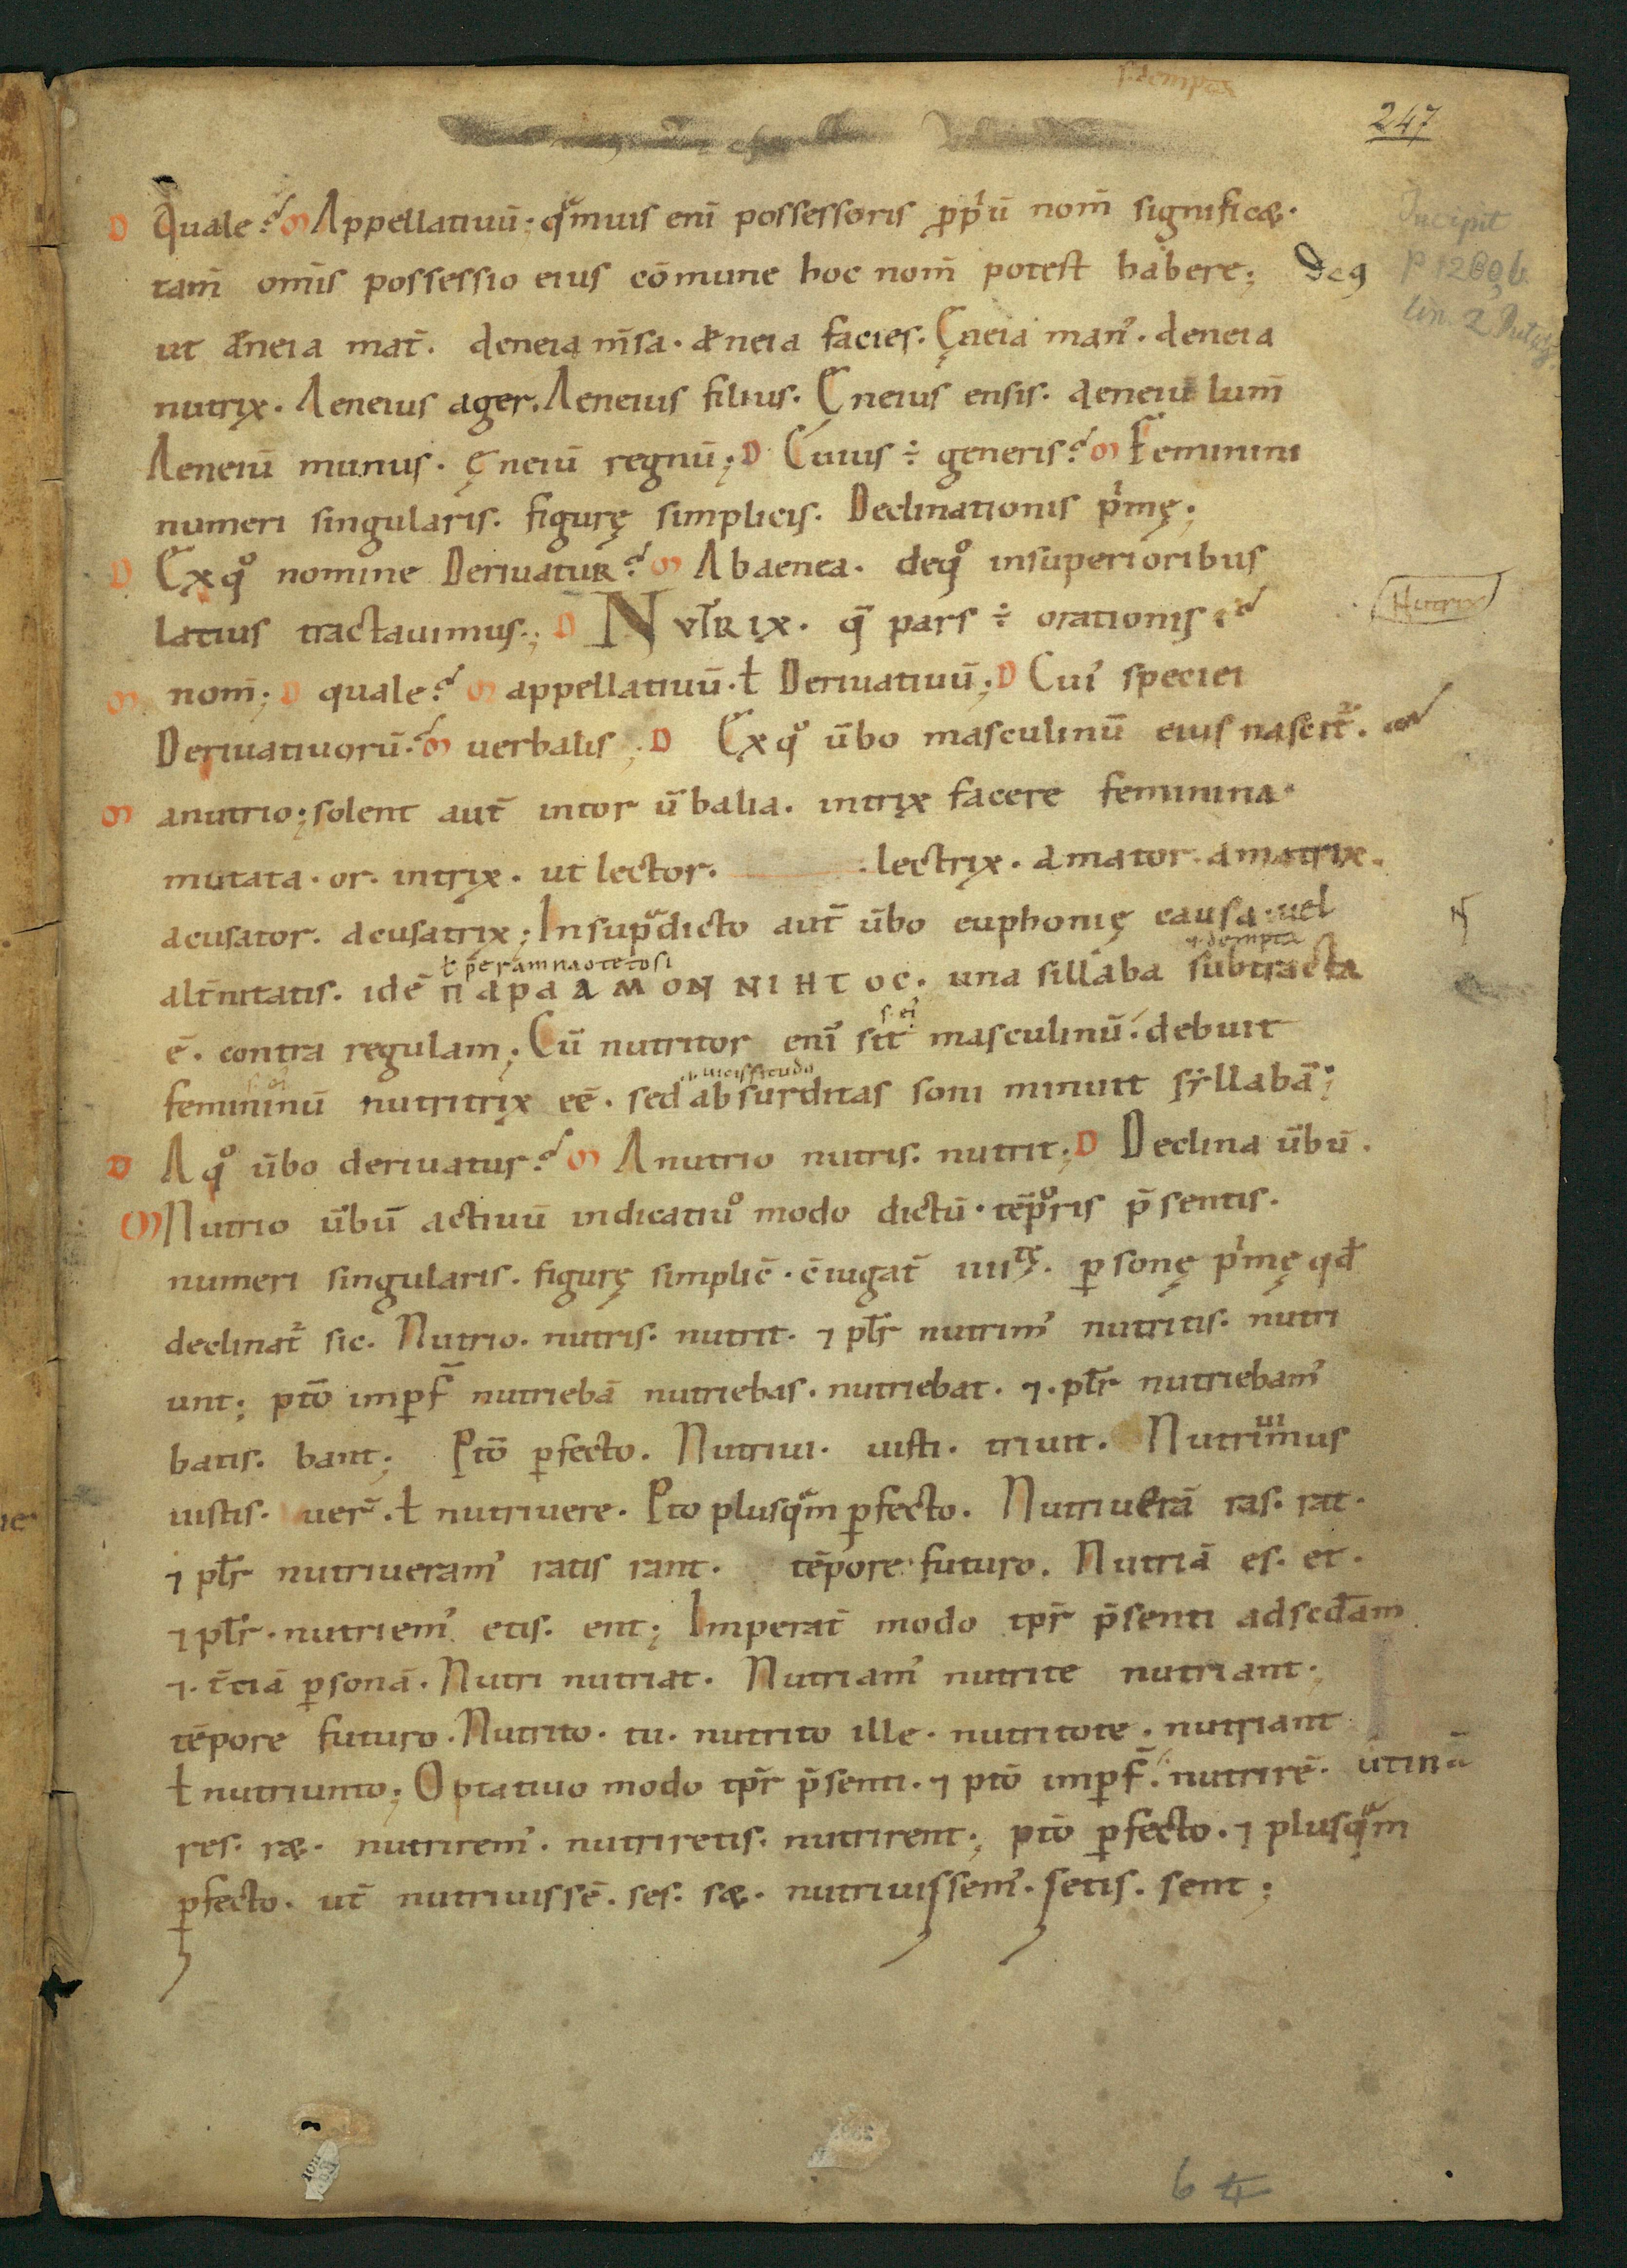 247
D Quale? M Appellatiuū. qͣmuis enī possessoris ꝓpͥū nom̄ significæ.
tam̄ om̄is possessio eius cōmune hoc nom̄ potest habere;
Incipit
ut æneia mat̄. æneia m̄sa. æneia facies. Ęneia man᾿. æneia
nutrix. Aeneius ager. Aeneius filius. Ęneius ensis. aeneiū lum̄
Aeneiū munus. ęneiū regnū; D Cuius ÷ generis? M Feminini
numeri singularis. figurę simplicis. Declinationis pͥmę;
D Exqͦ nomine Deriuatur? M Abaenea. deqͦ insuperioribus
latius tractauimus; D NVTRIX. q̄ pars ÷ orationis?
Nutrix
M nom̄; D quale? M appellatiuū. ł Deriuatiuū; D Cui᾿ speciei
Deriuatiuorū? M uerbalis; D Exqͦ ūbo masculinū eius nascit᷑.
M anutrio; solent aut̄ intor ūbalia. intrix facere feminina.
mutata. or. intrix. ut lector. lectrix. amator. amatrix.
acusator. acusatrix; Insupͣdicto aut̄ ūbo euphonię causa. uel
ı. dempta
alt̄nitatis. idē ΠΑΡΑ ΑΜΟΝ ΝΙΗΤΟC. una sillaba subtracta
ē. contra regulam; Cū nutritor enī sit masculinū. debuit
ı. uicissitudo
femininū nutritrix eē. sed absurditas soni minuit syllabā;
D Aqͦ ūbo deriuatur? M Anutrio nutris. nutrit; D Declina ūbū.
M Nutrio ūbū actiuū indicatiuͦ modo dictū. tēpͦris p̄sentis.
numeri singularis. figurę simplic̄. c̄iugat̄ iiiitę. ꝑsonę pͥmę qd̄
declinat᷑ sic. Nutrio. nutris. nutrit. ⁊ plr̄ nutrim᾿ nutritis. nutri
unt; ptō imꝑf̄ nutriebā nutriebas. nutriebat. ⁊. plr̄ nutriebam᾿
batis. bant; Ptō ꝑfecto. Nutriui. uisti. triuit. Nutriuimus
uistis. uer̄. ł nutriuere. Pto plusqͣm ꝑfecto. Nutriuerā ras. rat.
⁊ plr̄ nutriueram᾿ ratis rant. tēpore futuro. Nutriā es. et.
⁊ plr̄. nutriem᾿ etis. ent; Imperat̄ modo tpr̄ p̄senti adsecd̄am
⁊. t̄ciā ꝑsonā. Nutri nutriat. Nutriam᾿ nutrite nutriant;
tēpore futuro. Nutrito. tu. nutrito ille. nutritote. nutriant
ł nutriunto; Optatiuo modo tpr̄ p̄senti. ⁊ ptō imꝑf̄. nutrirē. utinā
res. ræ. nutrirem᾿. nutriretis. nutrirent; ptō ꝑfecto. ⁊ plusqͣm
ꝑfecto. ut̄ nutriuissē. ses. sæ. nutriuissem᾿. setis. sent;